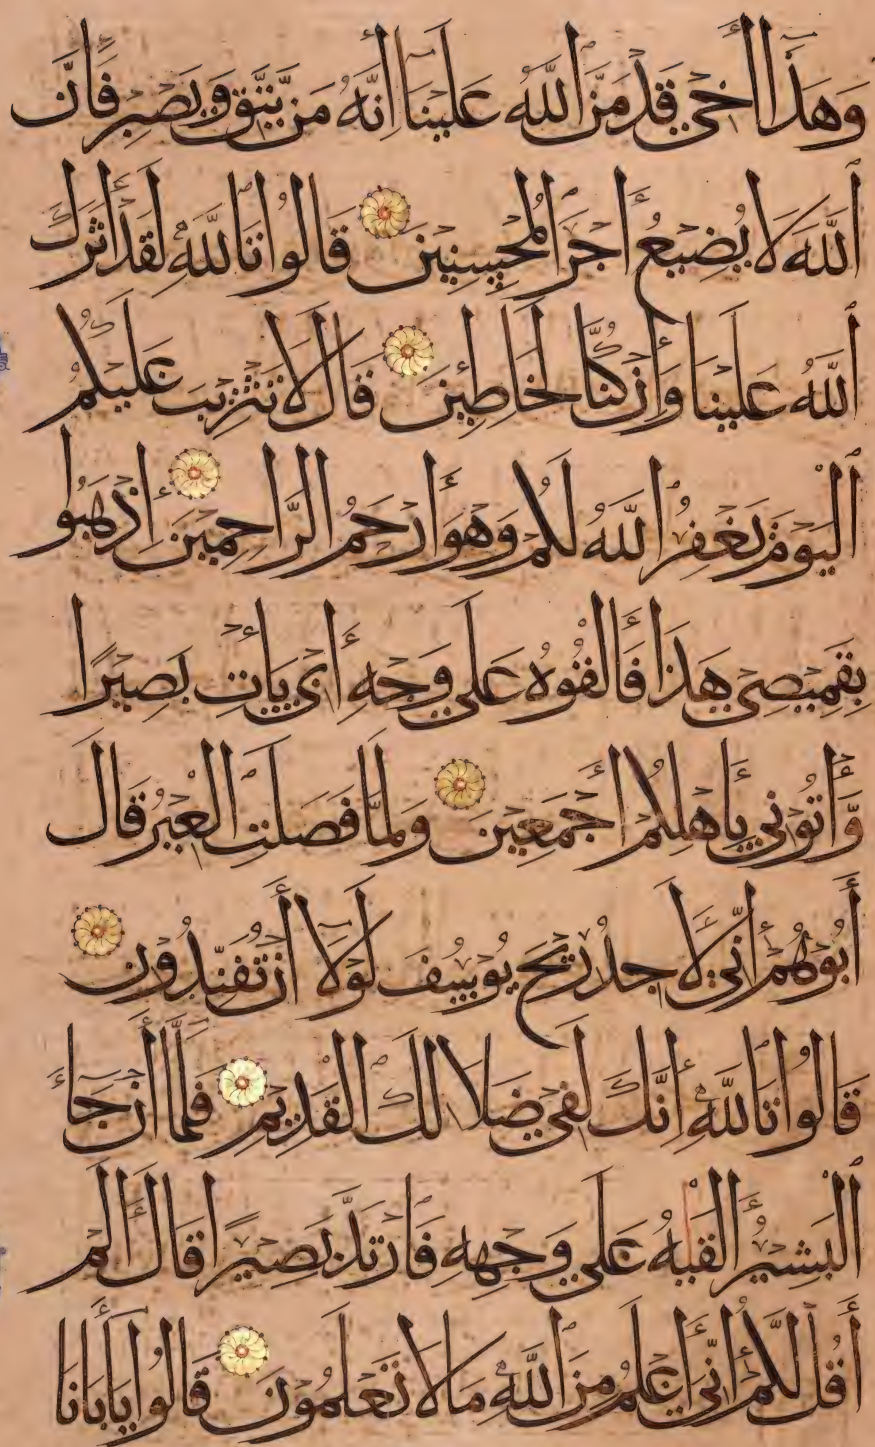 وَهَذَا أَخِي قَدْ مَنَّ اللَّهُ عَلَيْنَا إِنَّهُ مَنْ يَتَّقِ وَيَصْبِرْ فَإِنَّ
اللَّهَ لَا يُضِيعُ أَجْرَ الْمُحْسِنِينَ قَالُوا تَاللَّهِ لَقَدْ آثَرَكَ
اللَّهُ عَلَيْنَا وَإِنْ كُنَّا لَخَاطِئِينَ قَالَ لَا تَثْرِيبَ عَلَيْكُمُ
الْيَوْمَ يَغْفِرُ اللَّهُ لَكُمْ وَهُوَ أَرْحَمُ الرَّاحِمِينَ اذْهَبُوا
بِقَمِيصِي هَذَا فَأَلْقُوهُ عَلَى وَجْهِ أَبِي يَأْتِ بَصِيرًا
وَأْتُونِي بِأَهْلِكُمْ أَجْمَعِينَ وَلَمَّا فَصَلَتِ الْعِيرُ قَالَ
أَبُوهُمْ إِنِّي لَأَجِدُ رِيحَ يُوسُفَ لَوْلَا أَنْ تُفَنِّدُونِ
قَالُوا تَاللَّهِ إِنَّكَ لَفِي ضَلَالِكَ الْقَدِيمِ فَلَمَّا أَنْ جَاءَ
الْبَشِيرُ أَلْقَاهُ عَلَى وَجْهِهِ فَارْتَدَّ بَصِيرًا قَالَ أَلَمْ
أَقُلْ لَكُمْ إِنِّي أَعْلَمُ مِنَ اللَّهِ مَا لَا تَعْلَمُونَ قَالُوا يَا أَبَانَا